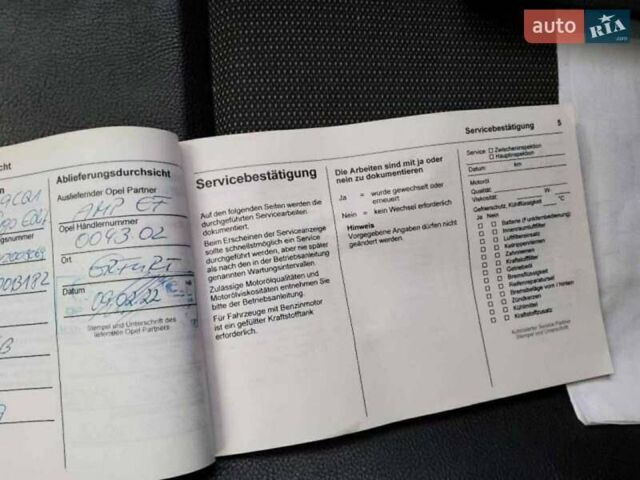 auto RIA
.com
Servicebestätigung 5
Ablieferungsdurchsicht
Ausliefernder Opel Partner
AMP EF
Opel Händlernummer
0043.02
Ort
ERFURT
Datum
09.02.22
Stempel und Unterschrift des
liefernden Opel Partners
Servicebestätigung
Auf den folgenden Seiten werden die
durchgeführten Servicearbeiten
dokumentiert.
Beim Erscheinen der Serviceanzeige
sollte schnellstmöglich ein Service
durchgeführt werden, aber nie später
als nach den in der Betriebsanleitung
genannten Wartungsintervallen.
Zulässige Motorölqualitäten und
Motorölviskositäten entnehmen Sie
bitte der Betriebsanleitung.
Für Fahrzeuge mit Benzinmotor
ist ein gefüllter Kraftstofftank
erforderlich.
Die Arbeiten sind mit ja oder
nein zu dokumentieren
Ja = wurde gewechselt oder
erneuert
Nein = kein Wechsel erforderlich
Hinweis
Vorgegebene Angaben dürfen nicht
geändert werden.
Service Zwischeninspektion
Hauptinspektion
Datum km
Motoröl
Qualität:
Viskosität: W-
Gefrierschutz, Kühlflüssigkeit °C
Ja Nein
Batterie (Funkfernbedienung)
Innenraumluftfilter
Luftfiltereinsatz
Keilrippenriemen
Zahnriemen
Kraftstofffilter
Getriebeöl
Bremsflüssigkeit
Reifenreparaturset
Bremsbeläge vorn / hinten
Zündkerzen
Kühlmittel
Kraftstoffzusatz
Autorisierter Service Partner
Stempel und Unterschrift